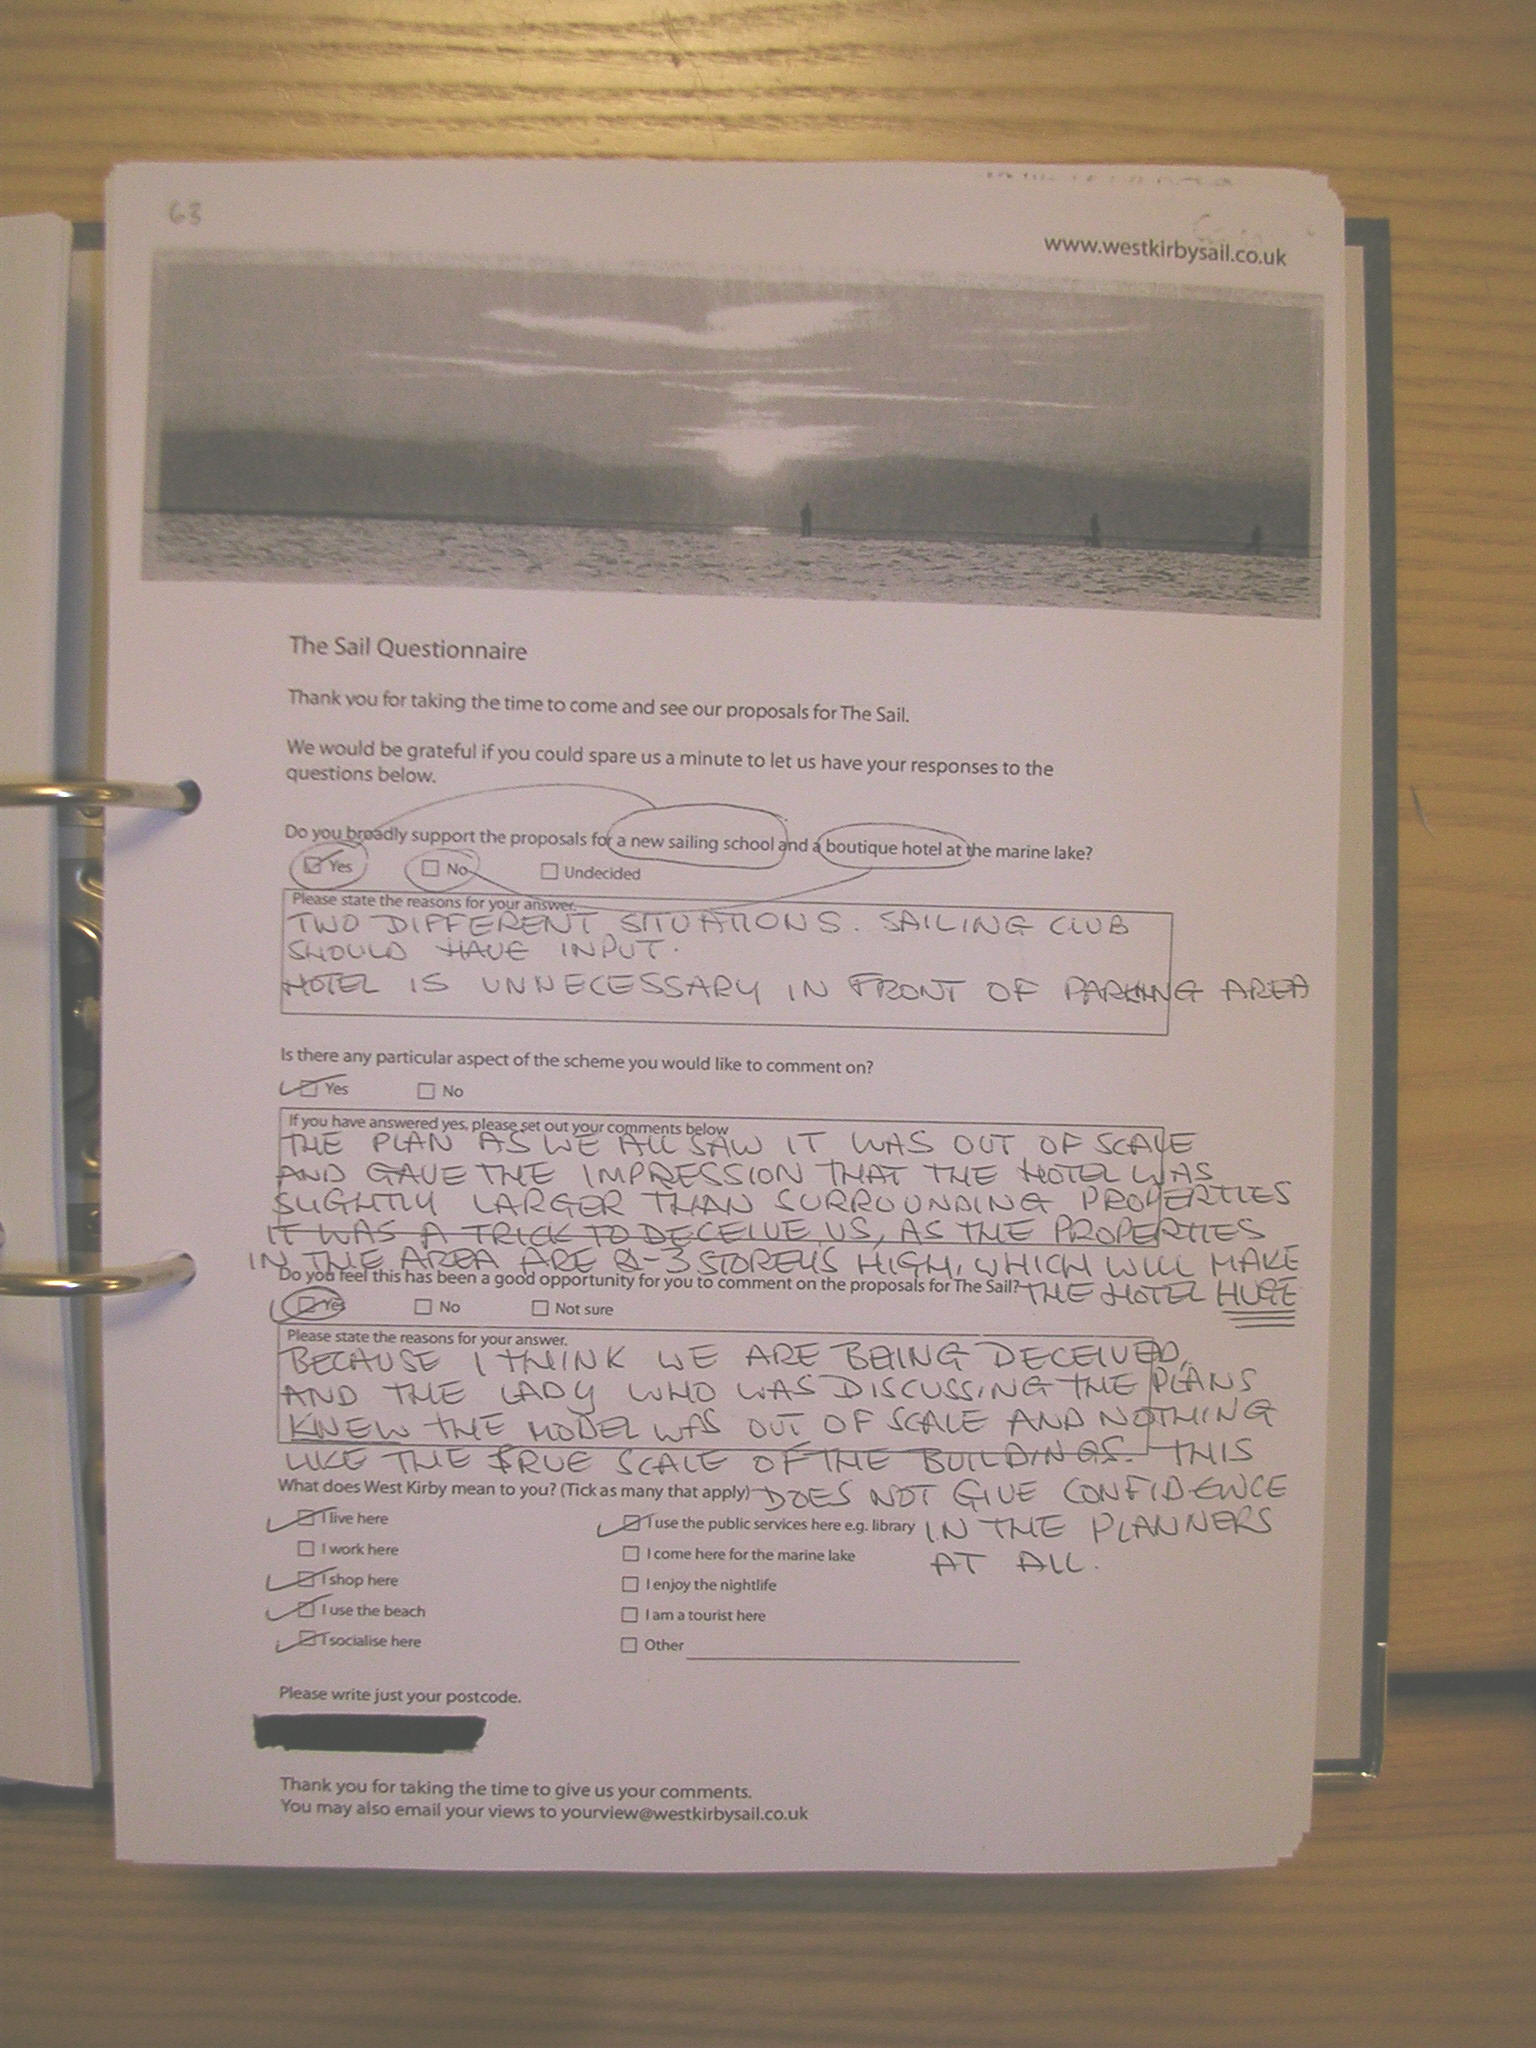 63
www.westkirbysail.co.uk
The Sail Questionnaire
Thank you for taking the time to come and see our proposals for The Sail.
We would be grateful if you could spare us a minute to let us have your responses to the
questions below.
Do you broadly support the proposals for a new sailing school and a boutique hotel at the marine lake?
Yes No Undecided
Please state the reasons for your answer.
TWO DIFFERENT SITUATIONS. SAILING CLUB
SHOULD HAVE INPUT.
HOTEL IS UNNECESSARY IN FRONT OF PARKING AREA
Is there any particular aspect of the scheme you would like to comment on?
Yes No
If you have answered yes, please set out your comments below
THE PLAN AS WE ALL SAW IT WAS OUT OF SCALE
AND GAVE THE IMPRESSION THAT THE HOTEL WAS
SLIGHTLY LARGER THAN SURROUNDING PROPERTIES
IT WAS A TRICK TO DECEIVE US, AS THE PROPERTIES
IN THE AREA ARE 2-3 STOREYS HIGH, WHICH WILL MAKE
Do you feel this has been a good opportunity for you to comment on the proposals for The Sail? THE HOTEL HUGE
Yes No Not sure
Please state the reasons for your answer.
BECAUSE I THINK WE ARE BEING DECEIVED,
AND THE LADY WHO WAS DISCUSSING THE PLANS
KNEW THE MODEL WAS OUT OF SCALE AND NOTHING
LIKE THE TRUE SCALE OF THE BUILDINGS. THIS
What does West Kirby mean to you? (Tick as many that apply) DOES NOT GIVE CONFIDENCE
I live here I use the public services here e.g. library IN THE PLANNERS
I work here I come here for the marine lake AT ALL.
I shop here I enjoy the nightlife
I use the beach I am a tourist here
I socialise here Other
Please write just your postcode.
Thank you for taking the time to give us your comments.
You may also email your views to yourview@westkirbysail.co.uk